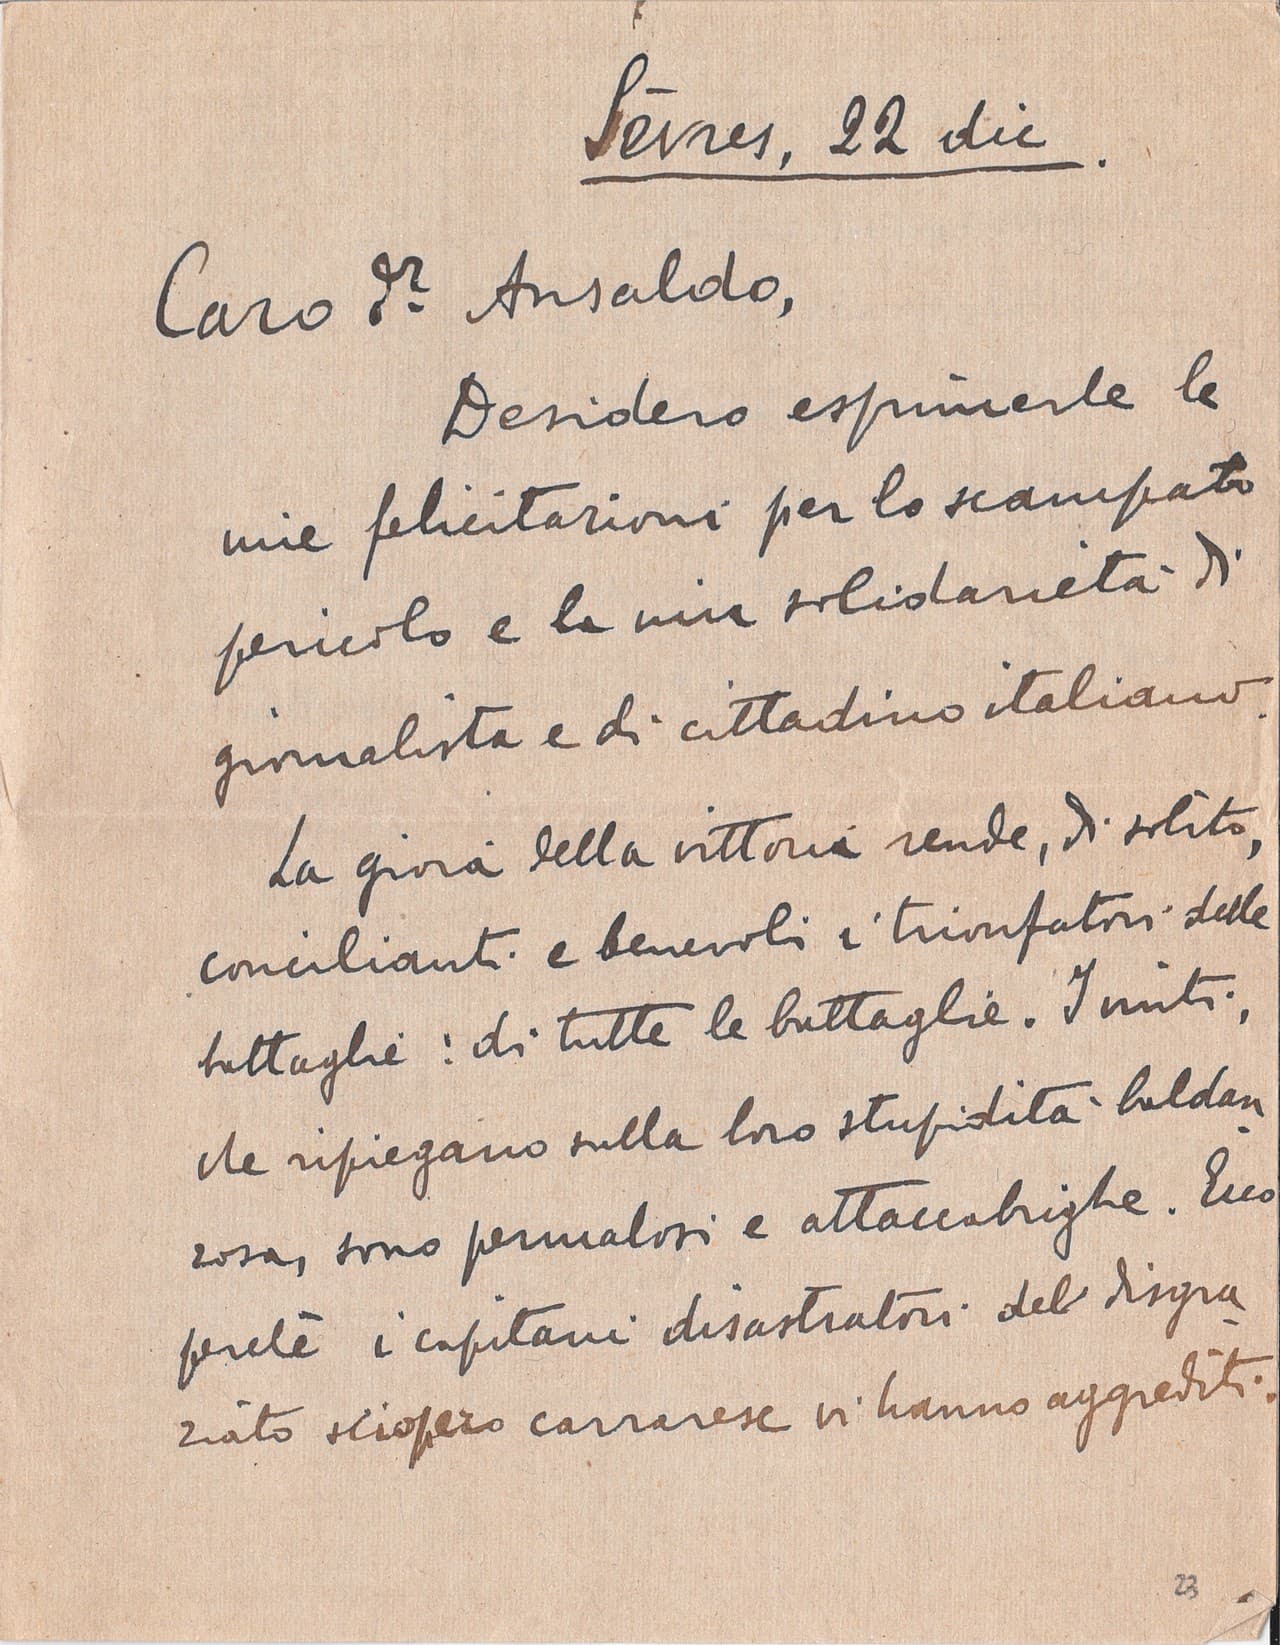 Sèvres, 22 dic.
Caro Dr. Ansaldo,
Desidero esprimerle le
mie felicitazioni per lo scampato
pericolo e la mia solidarietà di
giornalista e di cittadino italiano.
La gioia della vittoria rende, di solito,
concilianti e benevoli i trionfatori delle
battaglie: di tutte le battaglie. I miti,
che ripiegano sulla loro stupidità baldan
zosa, sono permalosi e attaccabrighe. Ecco
perchè i capitani disastratori del disgra
ziato sciopero carrarese vi hanno aggrediti.
23